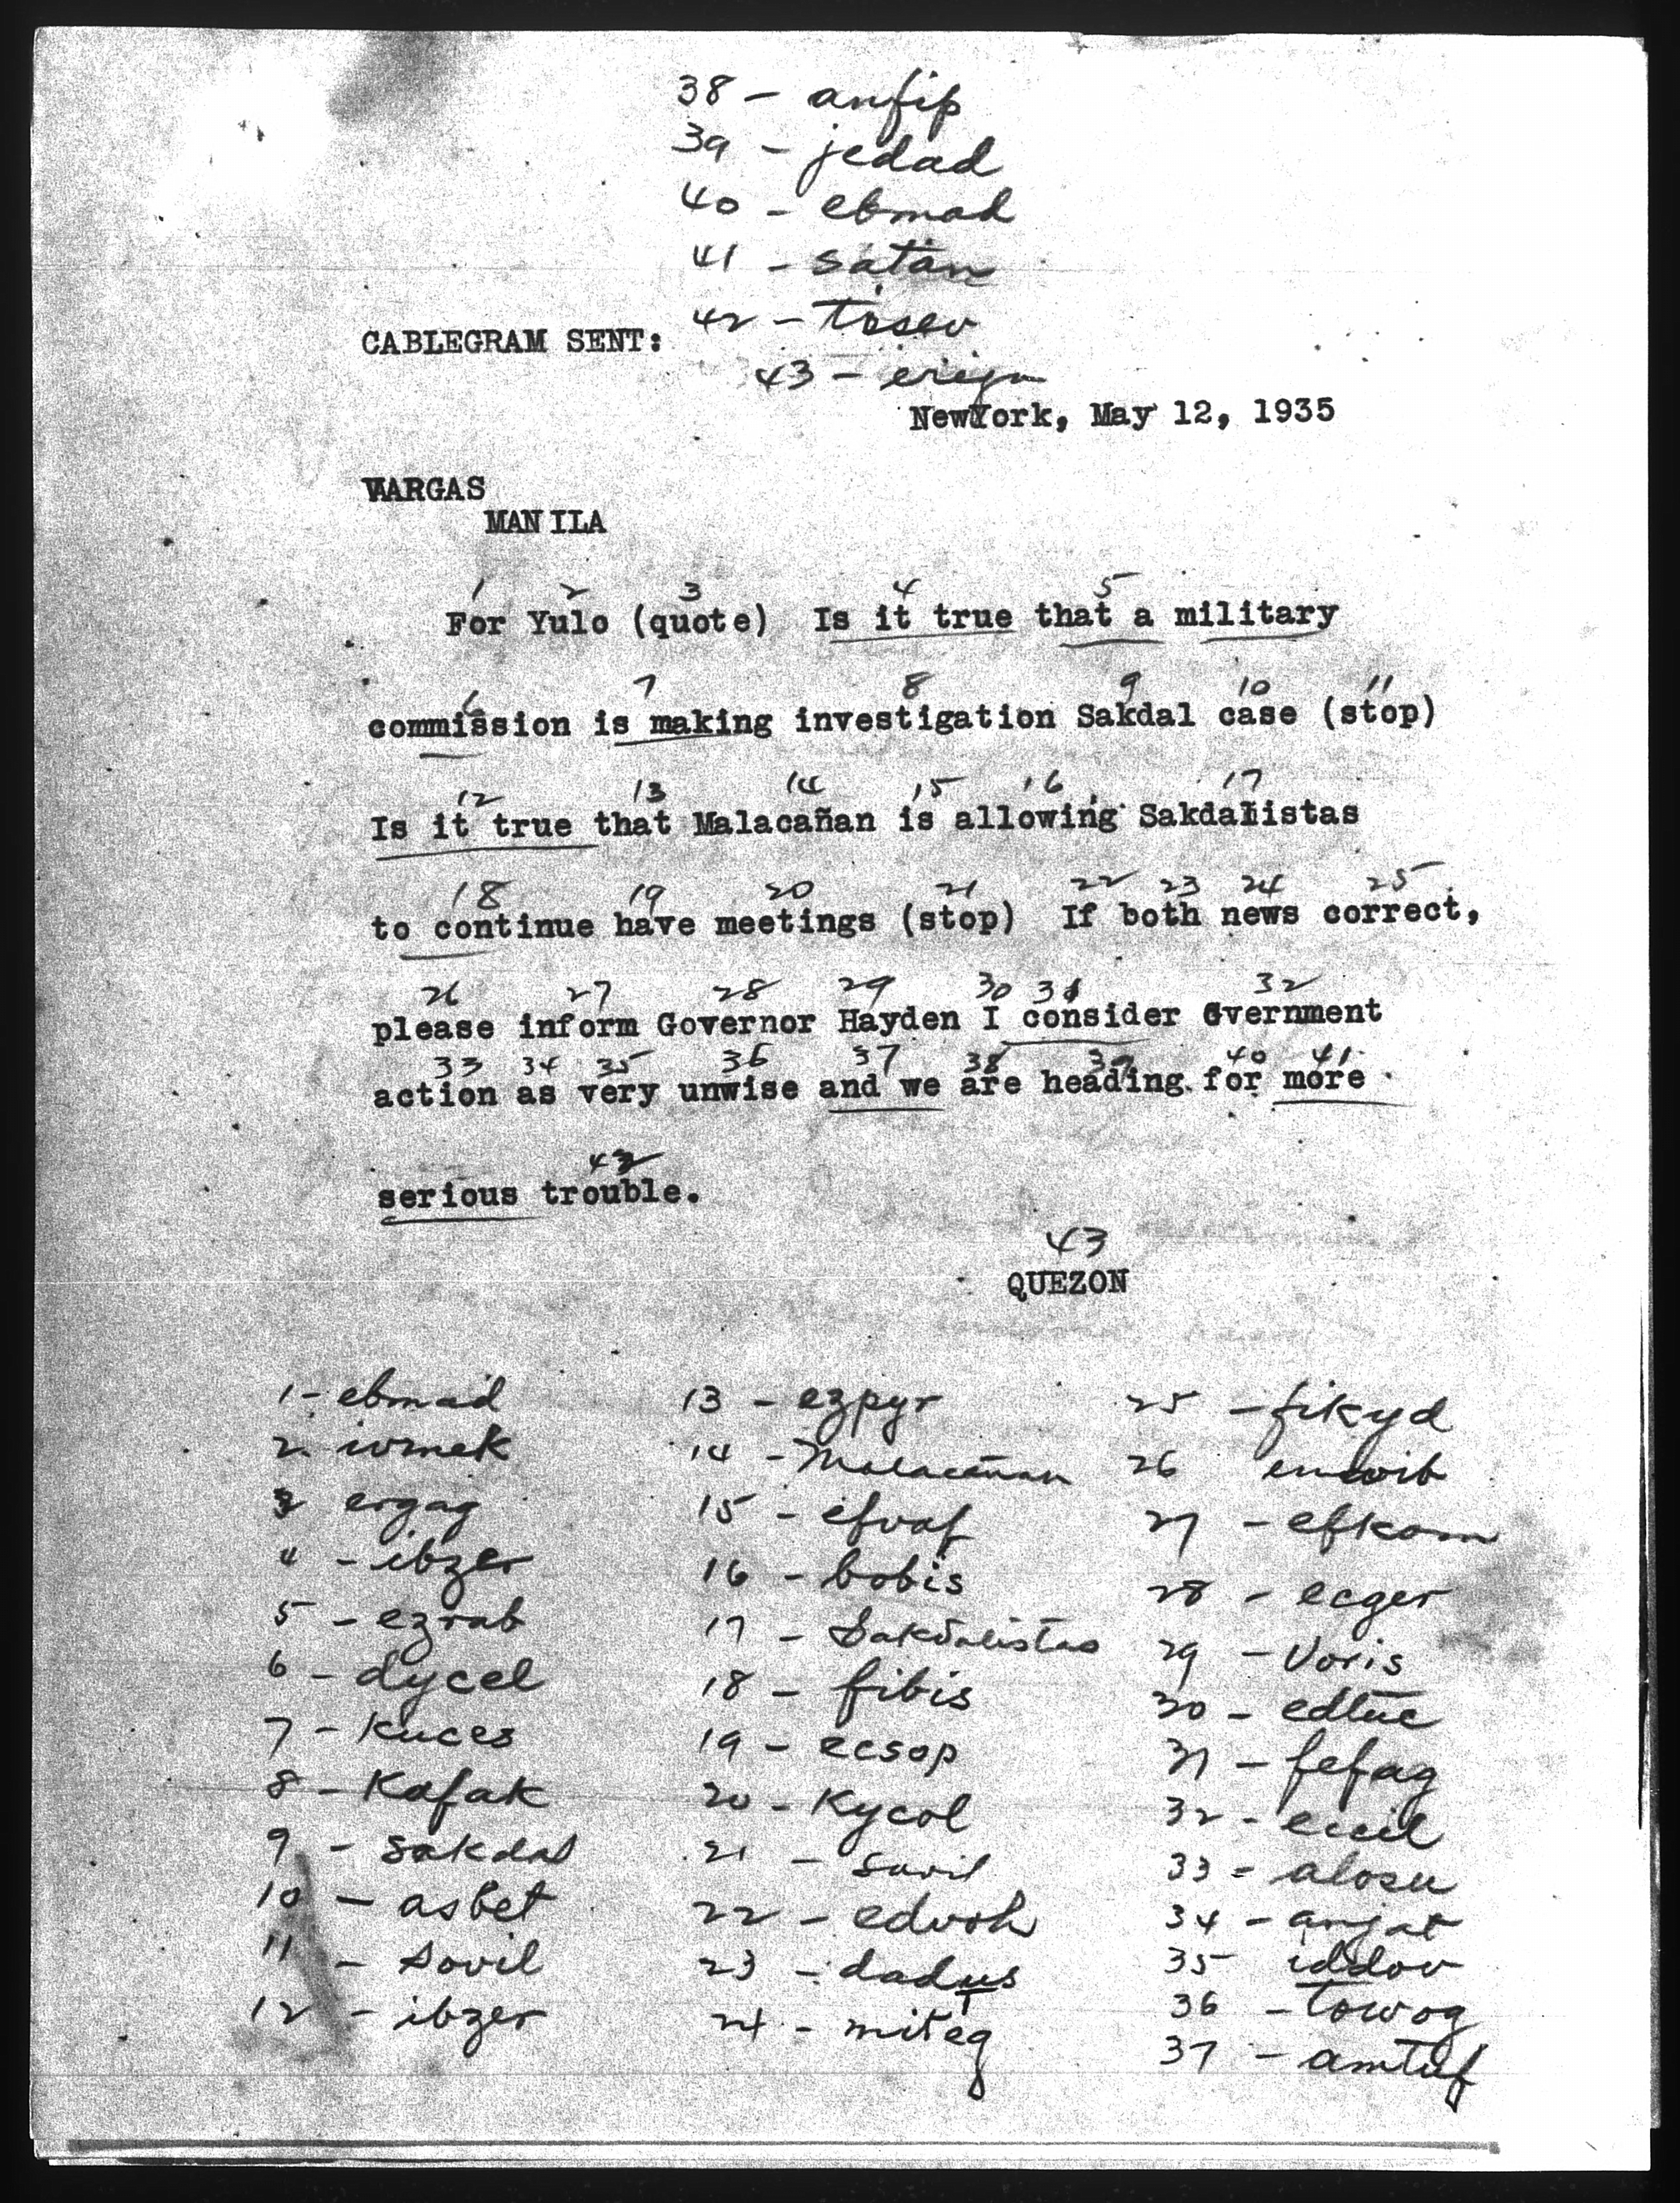 38 - anfip
39 - jedad
40 - ebmad
41 - satan
42 - tosev
CABLEGRAM SENT:
43 - erejn
NewYork, May 12, 1935
VARGAS
MANILA
1 2 3 4 5
For Yulo (quote) Is it true that a military
6 7 8 9 10 11
commission is making investigation Sakdal case (stop)
12 13 14 15 16 17
Is it true that Malacañan is allowing Sakdalistas
18 19 20 21 22 23 24 25
to continue have meetings (stop) If both news correct,
26 27 28 29 30 31 32
please inform Governor Hayden I consider Gvernment
33 34 35 36 37 38 39 40 41
action as very unwise and we are heading for more
42
serious trouble.
43
QUEZON
1 - ebmad
2. ivmek
3 ergag
4 - ibzer
5 - ezrab
6 - dycel
7 - Kuces
8 - Kafak
9 - Sakdal
10 - asbet
11 - sovil
12 - ibzer
13 - ezpyr
14 - Malacañan
15 - efvaf
16 - bobis
17 - Sakdalistas
18 - fibis
19 - ecsop
20 - Kycol
21 - sovil
22 - edvoh
23 - dadus
24 - miteg
25 - fikyd
26
27 - efkom
28 - ecger
29 - Voris
30 - edtuc
31 - fefag
32 -
33 - alosu
34 - anjat
35 iddov
36 - towog
37 - amtuf